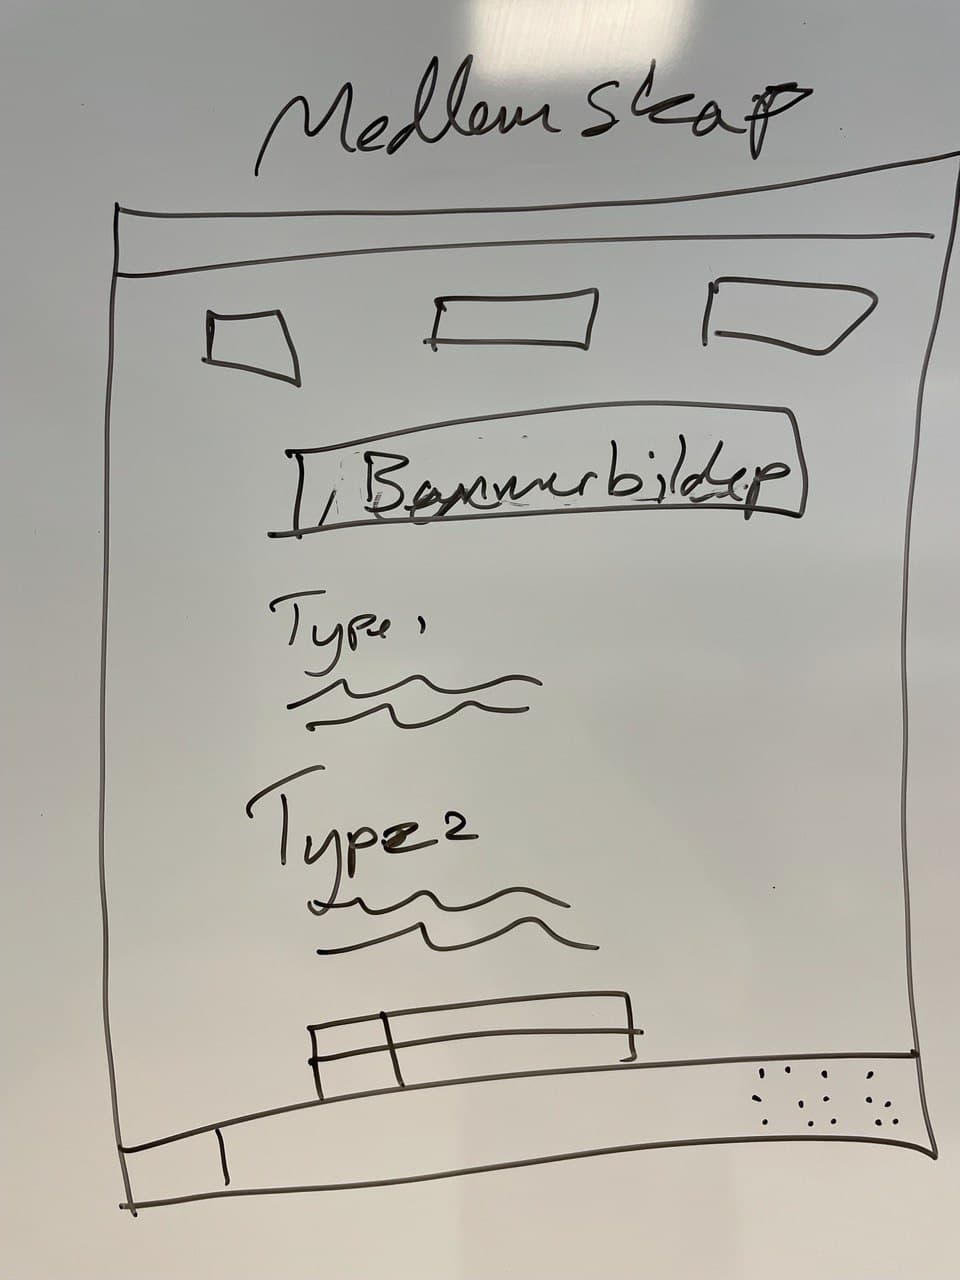 Medlemskap
Bannerbilder
Type 1
Type 2